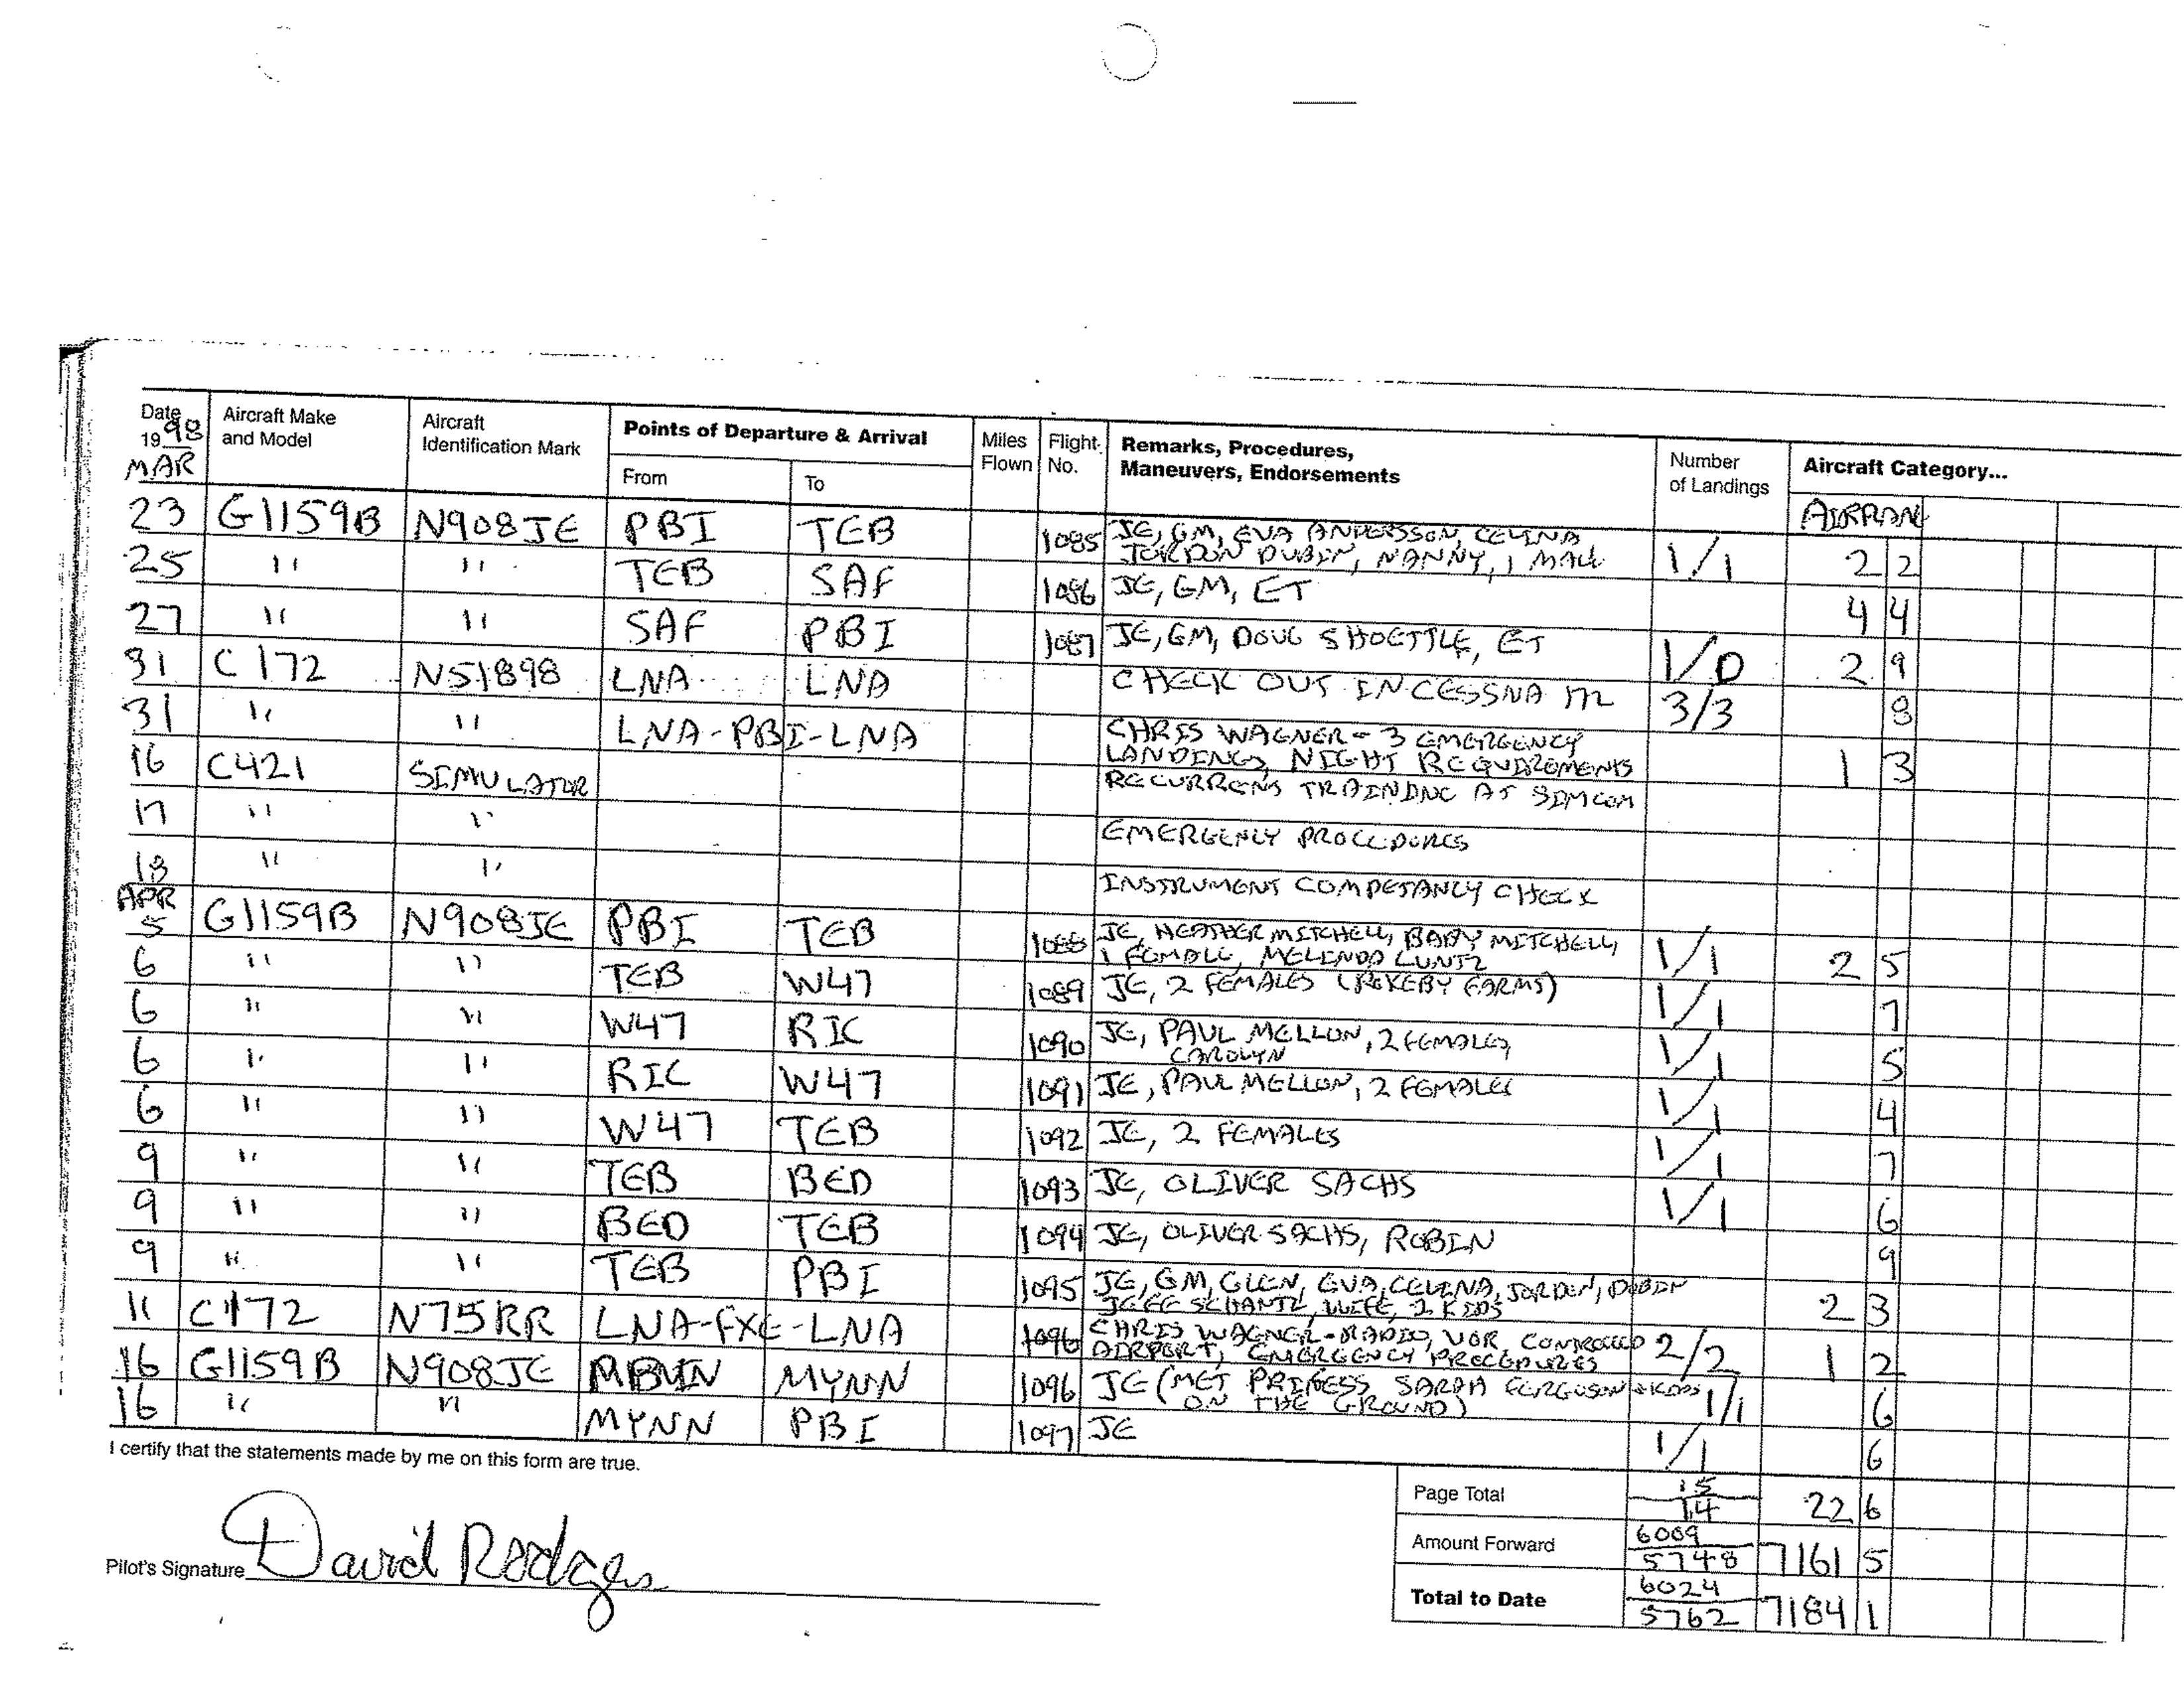 Date Aircraft Make Aircraft Points of Departure & Arrival Miles Flight Remarks, Procedures, Number Aircraft Category...
1998 and Model Identification Mark From To Flown No. Maneuvers, Endorsements of Landings
MAR AIRPLAN
23 G1159B N908JE PBI TEB 1085 JE, GM, EVA ANDERSSON, CELINA 1/1 2 2
JORDON DUBIN, NANNY, 1 MALE
25 " " TEB SAF 1086 JE, GM, ET 4 4
27 " " SAF PBI 1087 JE, GM, DOUG SHOETTLE, ET 1/0 2 9
31 C172 N51898 LNA LNA CHECK OUT IN CESSNA 172 3/3 8
31 " " LNA-PBI-LNA CHRIS WAGNER - 3 EMERGENCY 1 3
LANDINGS, NIGHT REQUIREMENTS
16 C421 SIMULATOR RECURRENT TRAINING AT SIMCOM
17 " " EMERGENCY PROCEDURES
18 " " INSTRUMENT COMPETANCY CHECK
APR
5 G1159B N908JE PBI TEB 1088 JE, HEATHER MITCHELL, BABY MITCHELL, 1/1 2 5
1 FEMALE, MELINDA LUNTZ
6 " " TEB W47 1089 JE, 2 FEMALES (ROKEBY FARMS) 1/1 7
6 " " W47 RIC 1090 JE, PAUL MELLON, 2 FEMALES, 1/1 5
CAROLYN
6 " " RIC W47 1091 JE, PAUL MELLON, 2 FEMALES 1/1 4
6 " " W47 TEB 1092 JE, 2 FEMALES 1/1 7
9 " " TEB BED 1093 JE, OLIVER SACHS 1/1 6
9 " " BED TEB 1094 JE, OLIVER SACHS, ROBIN 9
9 " " TEB PBI 1095 JE, GM, GLEN, EVA, CELINA, JORDEN, DUBIN 2 3
JEFF SCHANTZ, WIFE, 2 KIDS
11 C172 N75RR LNA-FXE-LNA 1096 CHRIS WAGNER-RADIO, VOR CONTROLLED 2/2 1 2
AIRPORT, EMERGENCY PROCEDURES
16 G1159B N908JE MYNN 1096 JE (MET PRINCESS SARAH FERGUSON & KIDS 1/1 6
ON THE GROUND)
16 " " MYNN PBI 1097 JE 1/1 6
I certify that the statements made by me on this form are true.
Page Total 15 22 6
14
Amount Forward 6009 7161 5
5748
Total to Date 6024 7184 1
5762
Pilot's Signature David Rodgers